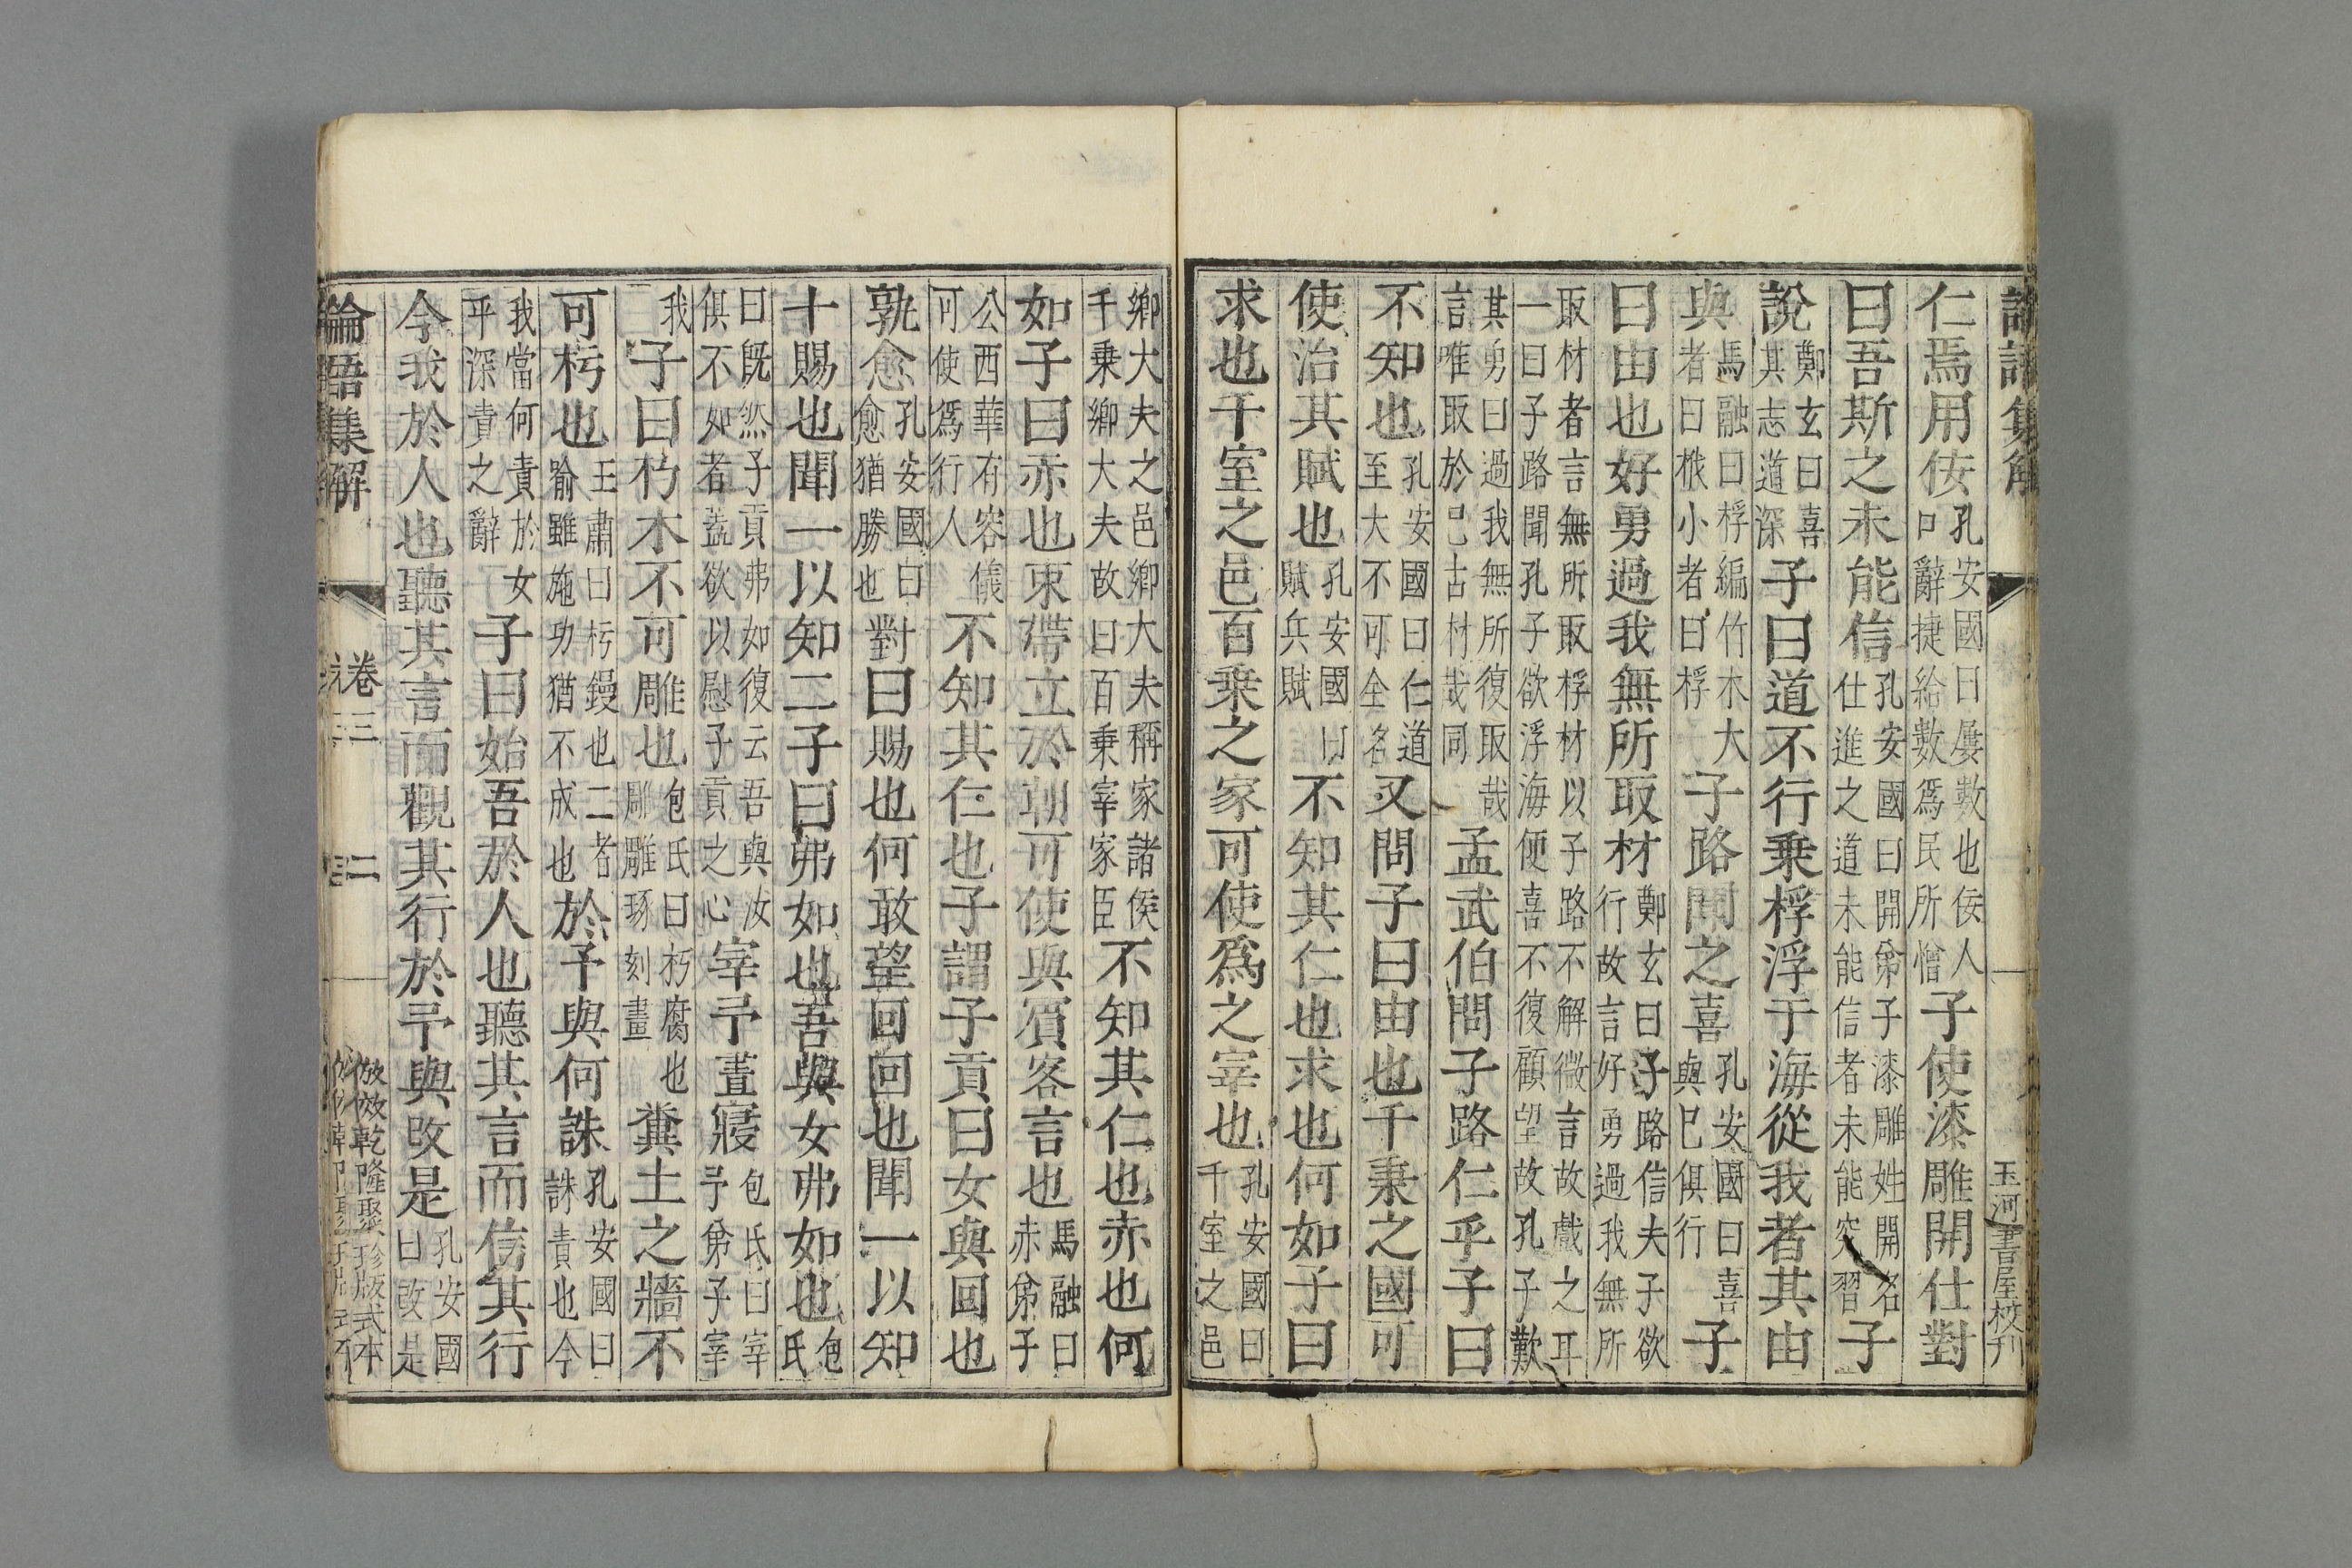 玉河書屋校刊
仁焉用佞孔安國曰屢數也佞人口辭捷給數爲民所憎子使漆雕開仕對
曰吾斯之未能信孔安國曰開弟子漆雕姓開名仕進之道未能信者未能究習子
說鄭玄曰喜其志道深子曰道不行乗桴浮于海從我者其由
與馬融曰桴編竹木大者曰栰小者曰桴子路聞之喜孔安國曰喜與已俱行子
曰由也好勇過我無所取材鄭玄曰子路信夫子欲行故言好勇過我無所
取材者言無所取桴材以子路不解微言故戲之耳一曰子路聞孔子欲浮海便喜不復顧望故孔子歎
其勇曰過我無所復取哉言唯取於已古材哉同孟武伯問子路仁乎子曰
不知也孔安國曰仁道至大不可全名又問子曰由也千乗之國可
使治其賦也孔安國曰賦兵賦不知其仁也求也何如子曰
求也千室之邑百乗之家可使爲之宰也孔安國曰千室之邑
卿大夫之邑卿大夫稱家諸侯千乗卿大夫故曰百乗宰家臣不知其仁也赤也何
如子曰赤也束帶立於朝可使與賓客言也馬融曰赤弟子
公西華有容儀可使爲行人不知其仁也子謂子貢曰女與回也
孰愈孔安國曰愈猶勝也對曰賜也何敢望回回也聞一以知
十賜也聞一以知二子曰弗如也吾與女弗如也包氏
曰旣然子貢弗如復云吾與汝俱不如者葢欲以慰子貢之心宰予晝寢包氏曰宰予弟子宰
我子曰朽木不可雕也包氏曰朽腐也雕雕琢刻畫糞土之牆不
可杇也王肅曰杇鏝也二者喻雖施功猶不成也於予與何誅孔安國曰誅責也今
我當何責於女乎深責之辭子曰始吾於人也聽其言而信其行
今我於人也聽其言而觀其行於予與改是孔安國曰改是
論語集解 卷三 二 倣效乾隆聚珍版式本